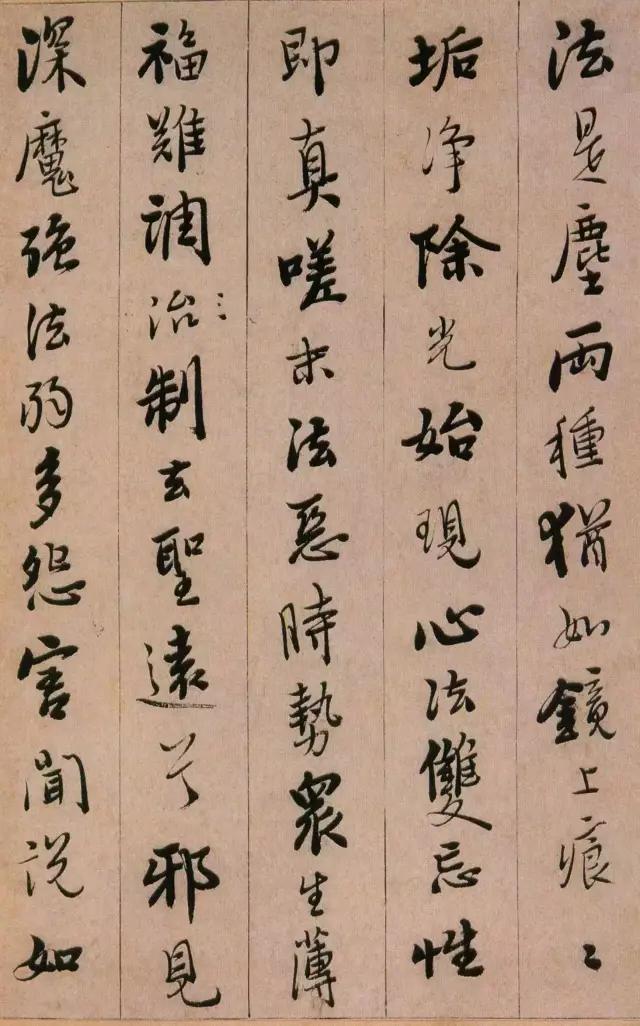 法是塵兩種猶如鏡上痕〻
垢淨除光始現心法雙忘性
即真嗟末法惡時勢衆生薄
福難調治制去聖遠兮邪見
深魔強法弱多怨害聞說如